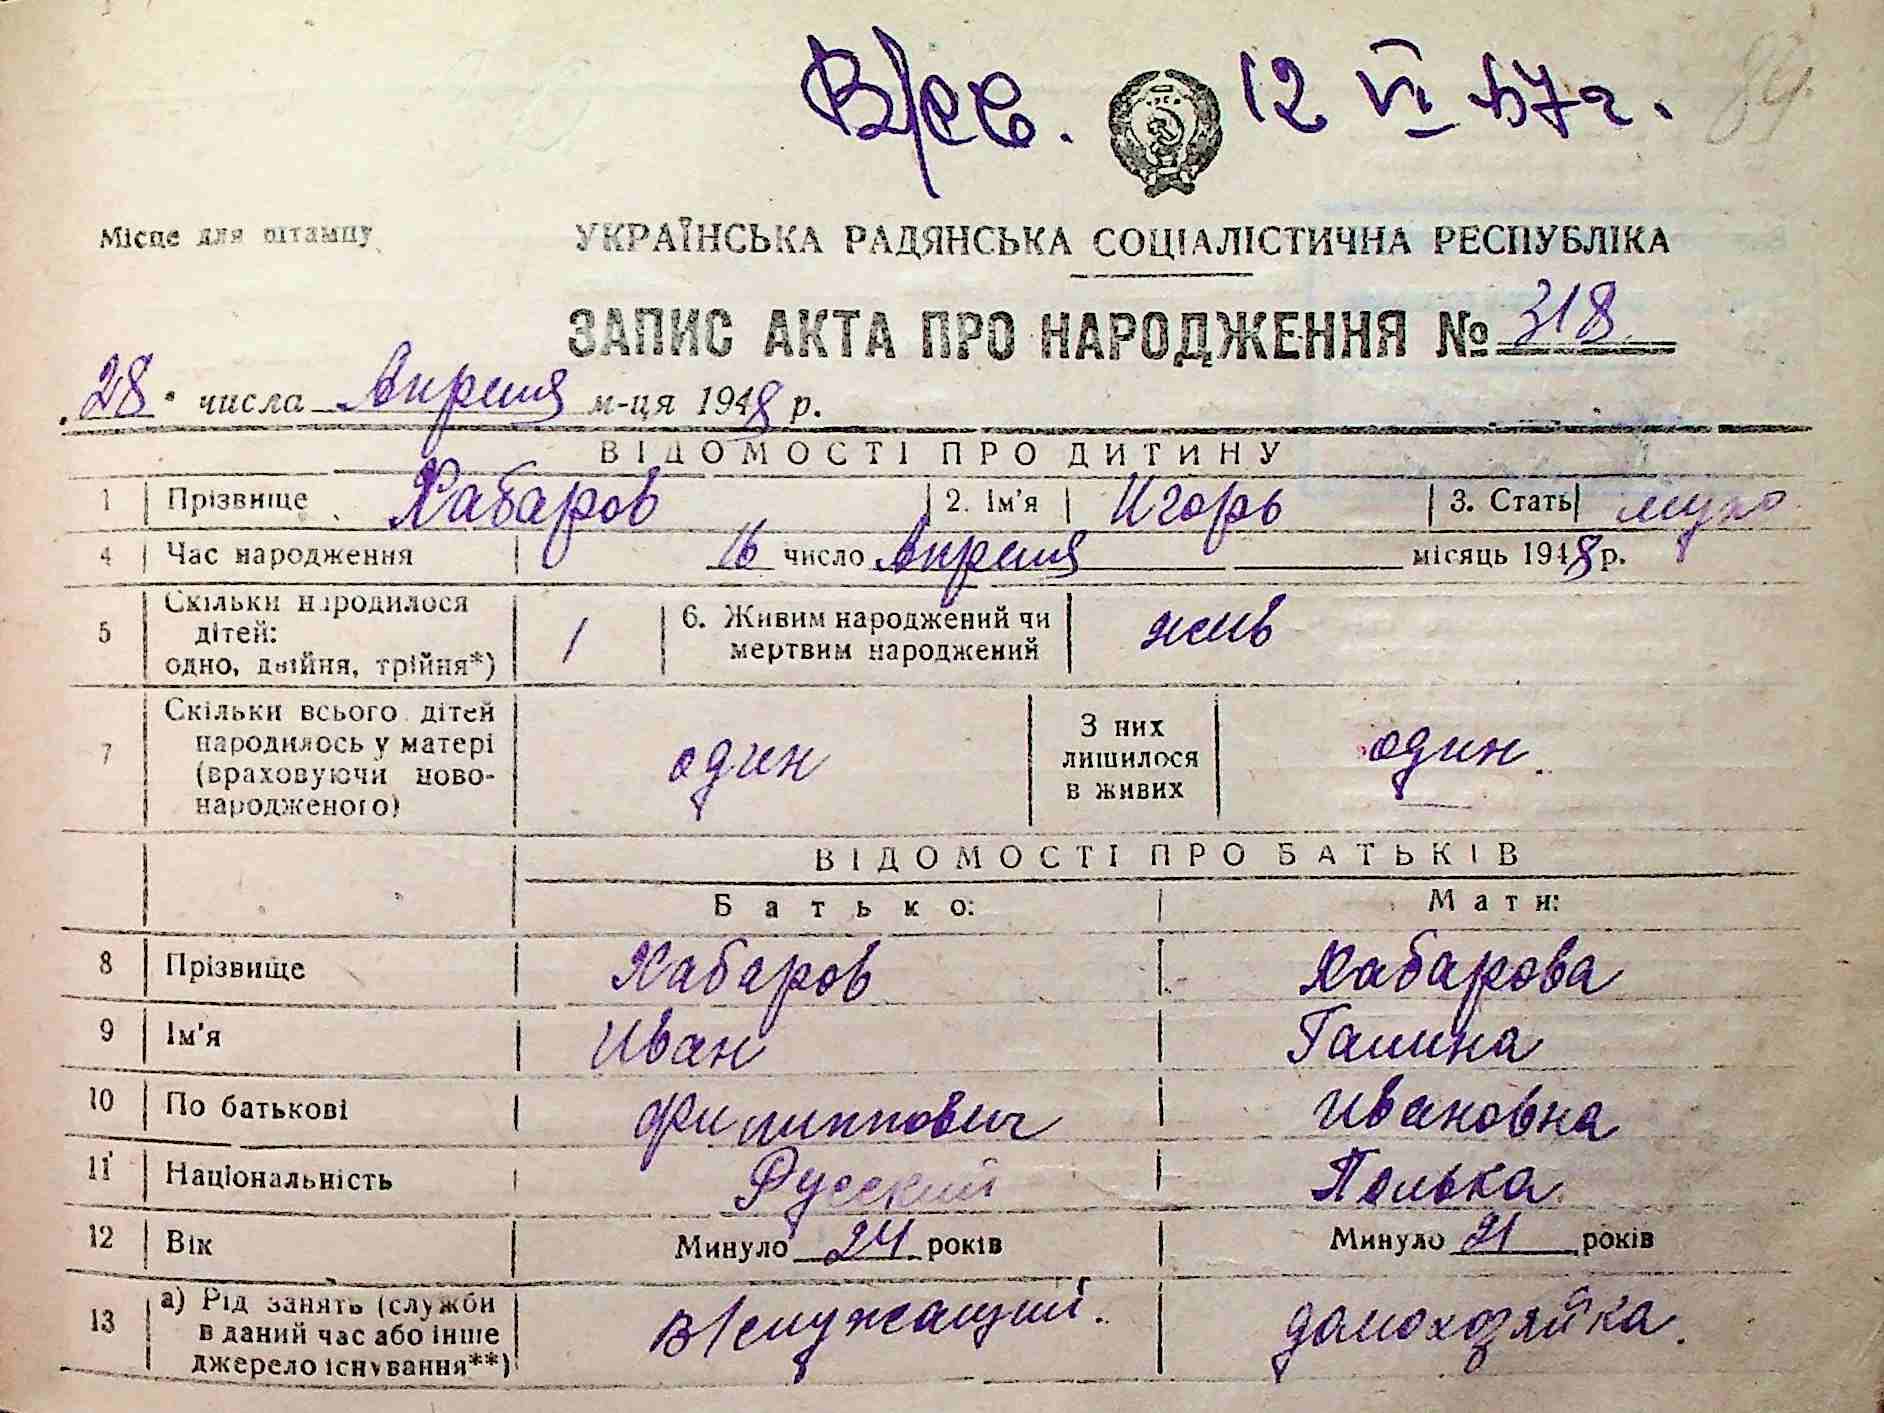 В/СС. 12 VI 57 г. 89.
Місце для штампу
УКРАЇНСЬКА РАДЯНСЬКА СОЦІАЛІСТИЧНА РЕСПУБЛІКА
ЗАПИС АКТА ПРО НАРОДЖЕННЯ № 318
28 числа Апреля м-ця 1948 р.
ВІДОМОСТІ ПРО ДИТИНУ
1 Прізвище Хабаров 2. Ім'я Игорь 3. Стать мужс
4 Час народження 16 число Апреля місяць 1948 р.
5 Скільки народилося дітей: одно, двійня, трійня*) 1 6. Живим народжений чи мертвим народжений жив
7 Скільки всього дітей народилось у матері (враховуючи новонародженого) один З них лишилося в живих один.
ВІДОМОСТІ ПРО БАТЬКІВ
Батько: Мати:
8 Прізвище Хабаров Хабарова
9 Ім'я Иван Галина
10 По батькові Филиппович Ивановна
11 Національність Русский Полька
12 Вік Минуло 24 років Минуло 21 років
13 а) Рід занять (служби в даний час або інше джерело існування**) в/служащий. домохозяйка.